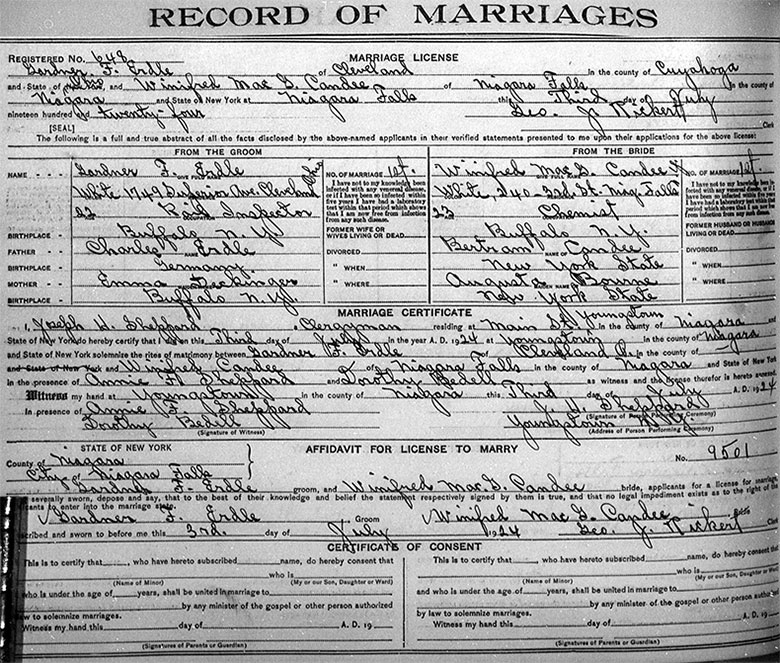 RECORD OF MARRIAGES
REGISTERED NO. 648 MARRIAGE LICENSE
Gardner F. Erdle of Cleveland in the county of Cuyahoga
and State of Ohio and Winifred Mac G. Candee of Niagara Falls in the county of
Niagara and State of New York at Niagara Falls this Third day of July
nineteen hundred and twenty-four Geo. J. Rickert Clerk
[SEAL]
The following is a full and true abstract of all the facts disclosed by the above-named applicants in their verified statements presented to me upon their applications for the above license:
FROM THE GROOM FROM THE BRIDE
NAME Gardner F. Erdle NO. OF MARRIAGE 1st. Winifred Mac G. Candee NO. OF MARRIAGE 1st.
White, 1743 Superior Ave. Cleveland Ohio I have not to my knowledge been infected with any venereal disease, or if I have been so infected within five years I have had a laboratory test within that period which shows that I am now free from infection from any such disease. White, 240 3rd St. Niag. Falls I have not to my knowledge been infected with any venereal
22 Inspector 22 Chemist
BIRTHPLACE Buffalo N.Y. FORMER WIFE OR WIVES LIVING OR DEAD Buffalo N.Y. FORMER HUSBAND OR HUSBANDS LIVING OR DEAD
FATHER Charles Erdle DIVORCED Bertram Candee DIVORCED
BIRTHPLACE Germany " WHEN New York State " WHEN
MOTHER Emma " WHEN Augusta Bourne " WHEN
BIRTHPLACE Buffalo N.Y. New York State
MARRIAGE CERTIFICATE
I, Joseph H. Sheppard Clergyman residing at Main St. Youngstown in the county of Niagara and
State of New York do hereby certify that I did on this Third day of July in the year A.D. 1924 at Youngstown in the county of Niagara
and State of New York solemnize the rites of matrimony between Gardner F. Erdle of Cleveland O. in the county of
and State of New York and Winifred Candee of Niagara Falls in the county of Niagara and State of New York
in the presence of Annie F. Sheppard and Dorothy Bedell as witness and the license therefor is hereto annexed.
Witness my hand at Youngstown in the county of Niagara this Third day of July A.D. 1924
In presence of Annie F. Sheppard J. H. Sheppard
(Signature of Person Performing Ceremony)
Dorothy Bedell Youngstown N.Y.
(Signature of Witness) (Address of Person Performing Ceremony)
STATE OF NEW YORK AFFIDAVIT FOR LICENSE TO MARRY No. 9501
County of Niagara
City of Niagara Falls
Gardner F. Erdle groom, and Winifred Mac G. Candee bride, applicants for a license for marriage,
severally sworn, depose and say, that to the best of their knowledge and belief the statement respectively signed by them is true, and that no legal impediment exists as to the right of the
applicants to enter into the marriage state.
Gardner F. Erdle Groom Winifred Mac G. Candee Bride
scribed and sworn to before me this 3rd. day of July 1924 Geo. J. Rickert Clerk
CERTIFICATE OF CONSENT
This is to certify that, who have hereto subscribed name, do hereby consent that This is to certify that, who have hereto subscribed name, do hereby consent that
who is who is
(Name of Minor) (My or our Son, Daughter or Ward) (Name of Minor) (My or our Son, Daughter or Ward)
and who is under the age of years, shall be united in marriage to and who is under the age of years, shall be united in marriage to
by any minister of the gospel or other person authorized by any minister of the gospel or other person authorized
by law to solemnize marriages. by law to solemnize marriages.
Witness my hand this day of A. D. 19 Witness my hand this day of A. D. 19
(Signatures of Parents or Guardian) (Signatures of Parents or Guardian)